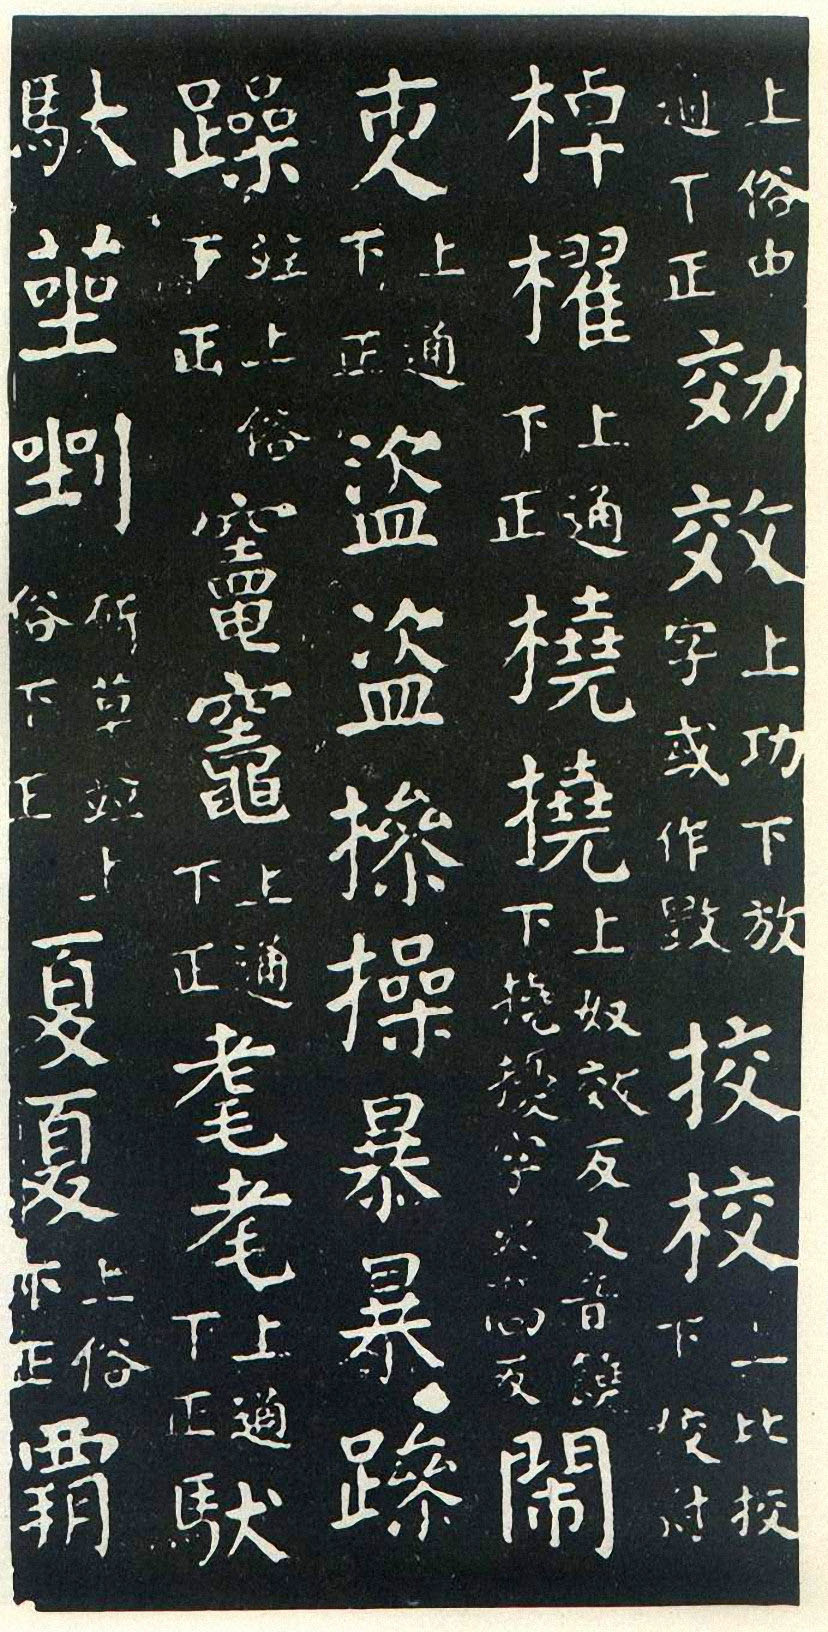 上俗中通下正効效上功下放字或作敩挍校上比挍下校尉
棹櫂上通下正橈撓上奴效反又音饒下撓擾字火高反閙
上通下正盗盜摻操暴㬥䠡
躁並上俗下正竈竈上通下正耄耄上通下正䭾
馱莝剉斫草並上俗下正夏夏上俗下正覇